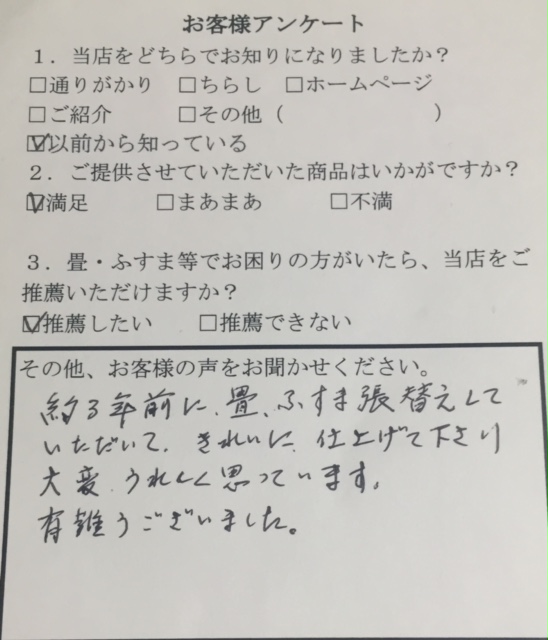 お客様アンケート
1．当店をどちらでお知りになりましたか？
□通りがかり　□ちらし　□ホームページ
□ご紹介　　　□その他（　　　　　　　）
☑以前から知っている
2．ご提供させていただいた商品はいかがですか？
☑満足　　　□まあまあ　　　□不満
3．畳・ふすま等でお困りの方がいたら、当店をご
推薦いただけますか？
☑推薦したい　　□推薦できない
その他、お客様の声をお聞かせください。
約3年前に、畳、ふすま張替えして
いただいて、きれいに仕上げて下さり
大変うれしく思っています。
有難うございました。